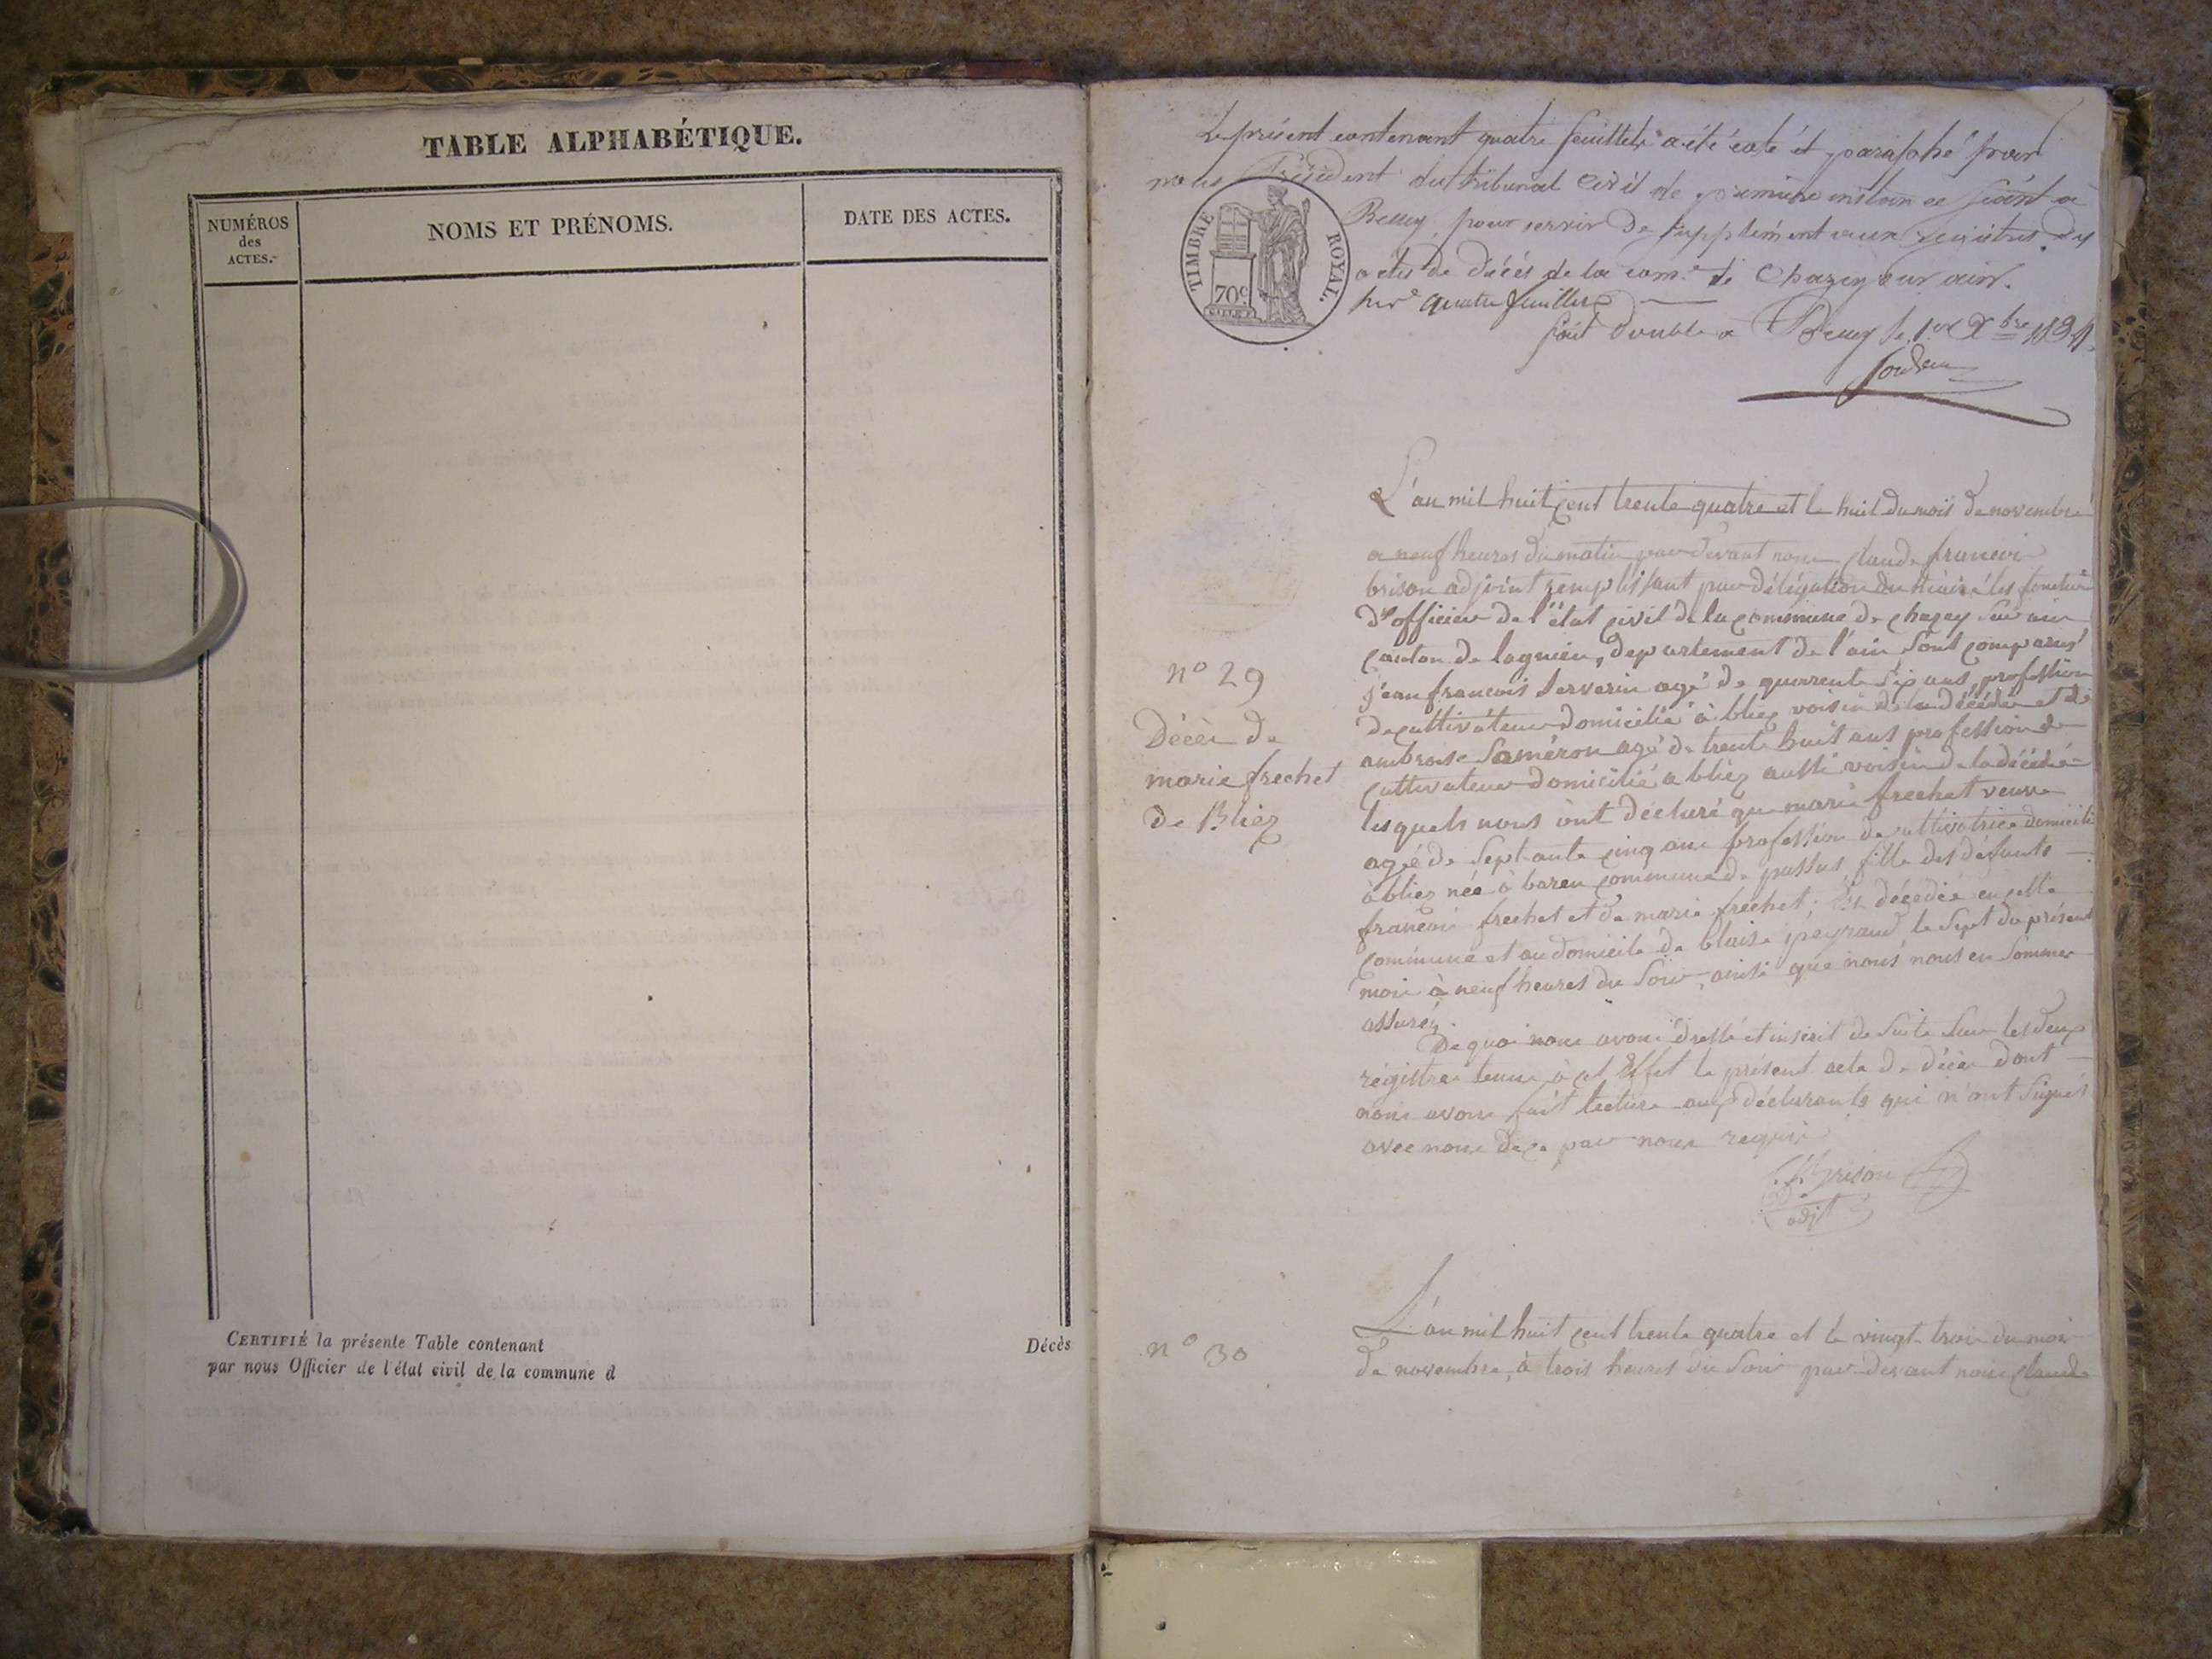 TABLE ALPHABÉTIQUE.
NUMÉROS
des
ACTES.
NOMS ET PRÉNOMS.
DATE DES ACTES.
CERTIFIÉ la présente Table contenant Décès
par nous Officier de l'état civil de la commune d
Le présent contenant quatre feuillets a été coté et paraphé par
nous Président du tribunal civil de première instance séant à
Belley, pour servir de supplément aux registres des
actes de décès de la com.e de Chazey sur ain.
quatre feuillets
fait double à Belley le 1er Xbre 1834.
TIMBRE ROYAL.
70c
L'an mil huit cent trente quatre et le huit du mois de novembre
a neuf heures du matin par devant nous claude francois
brison adjoint remplissant par délégation du maire les fonctions
d'officier de l'état civil de la commune de chazey sur ain
canton de lagnieu, departement de l'ain sont comparus
jean francois Serverin agé de quarente six ans, profession
de cultivateur domicilié à bliez voisin de la décédée et de
ambroise Saméron agé de trente huit ans profession de
cultivateur domicilié a bliez aussi voisin de la décédée
lesquels nous ont declaré que marie frechet veuve
agée de septante cinq ans profession de cultivatrice domicilié
à bliez née à baren commune de passas fille des défunts
francois frechet et de marie frechet, est décédée en cette
commune et au domicile de blaise peyraud le sept du présent
mois à neuf heures du soir, ainsi que nous nous en sommes
assurés
De quoi nous avons dressé et inscrit de suite sur les deux
régistres tenus à cet effet le présent acte de décès dont
nous avons fait lecture aux déclarants qui n'ont signés
avec nous de ce par nous requis
C. f. brison
adjt
n° 29
Décès de
marie frechet
de Bliez
n° 30
L'an mil huit cent trente quatre et le vingt trois du mois
de novembre, à trois heures du soir par-devant nous claude